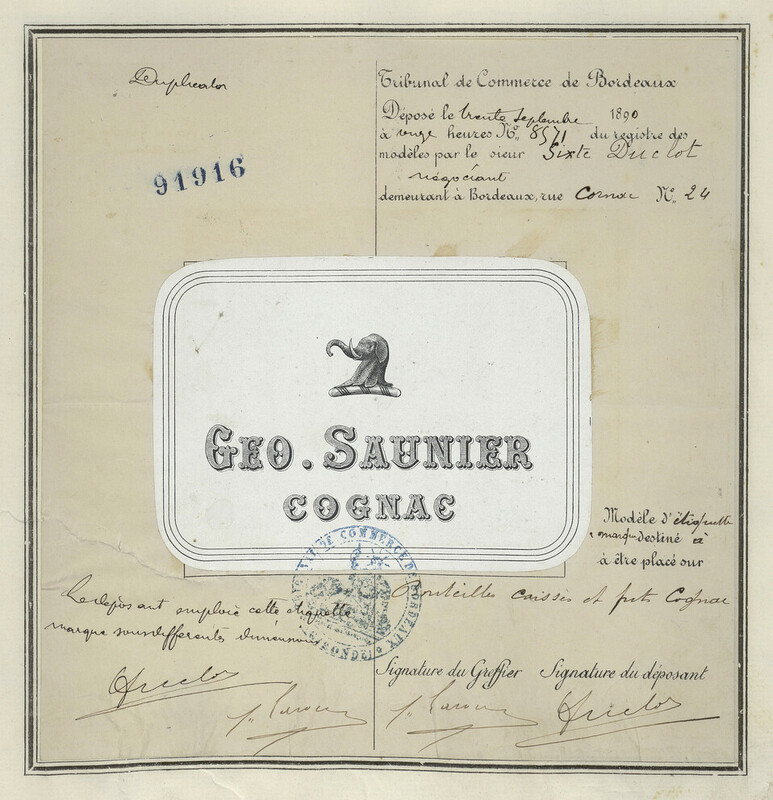 Duplicata
91916
Tribunal de Commerce de Bordeaux
Déposé le trente Septembre 1890
à onze heures No. 8571 du registre des
modèles par le sieur Sixte Duclot
négociant
demeurant à Bordeaux, rue Cornac No. 24
GEO. SAUNIER
COGNAC
Modèle d'étiquette
marque destiné à
à être placé sur
Bouteilles caisses et futs Cognac
Le déposant emploie cette étiquette
marque sous différentes dimensions
TRIBUNAL DE COMMERCE DE BORDEAUX
Signature du Greffier Signature du déposant
Duclot
Duclot